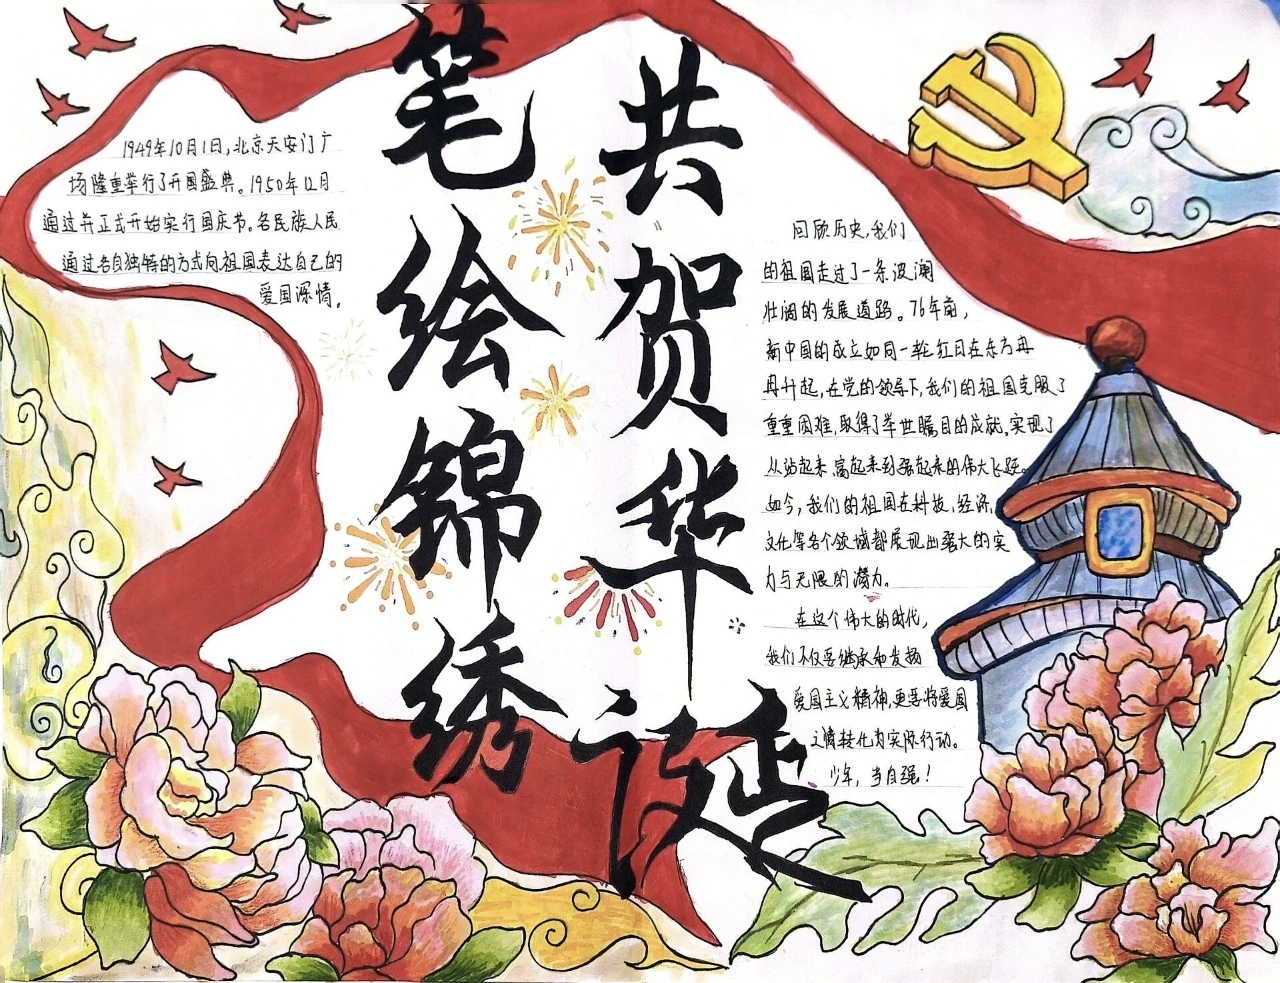 笔绘锦绣
共贺华诞
1949年10月1日,北京天安门广
场隆重举行了开国盛典。1950年12月
通过并正式开始实行国庆节。各民族人民
通过各自独特的方式向祖国表达自己的
爱国深情。
回顾历史,我们
的祖国走过了一条波澜
壮阔的发展道路。76年前,
新中国的成立如同一轮红日在东方冉
冉升起,在党的领导下,我们的祖国克服了
重重困难,取得了举世瞩目的成就,实现了
从站起来、富起来到强起来的伟大飞跃。
如今,我们的祖国在科技、经济、
文化等各个领域都展现出强大的实
力与无限的潜力。
在这个伟大的时代,
我们不仅要继承和发扬
爱国主义精神,更要将爱国
之情转化为实际行动。
少年,当自强!